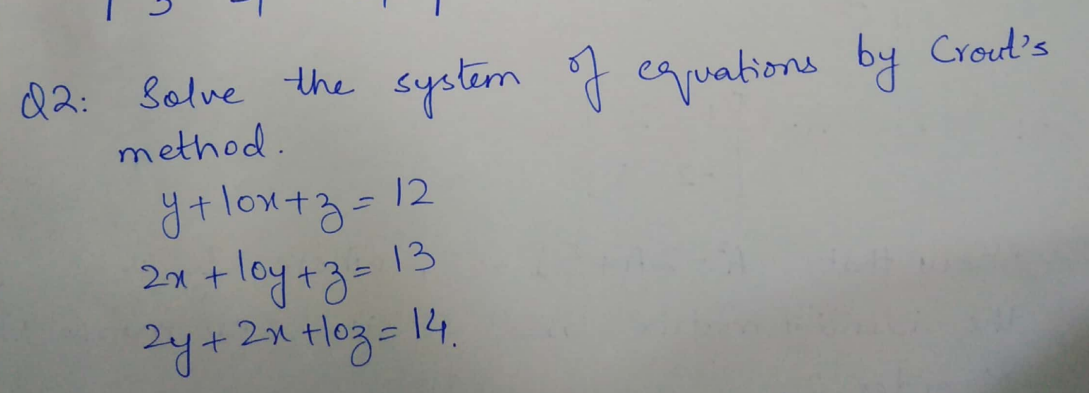 Q2: Solve the system of equations by Crout's
method.
y + 10x + z = 12
2x + 10y + z = 13
2y + 2x + 10z = 14.